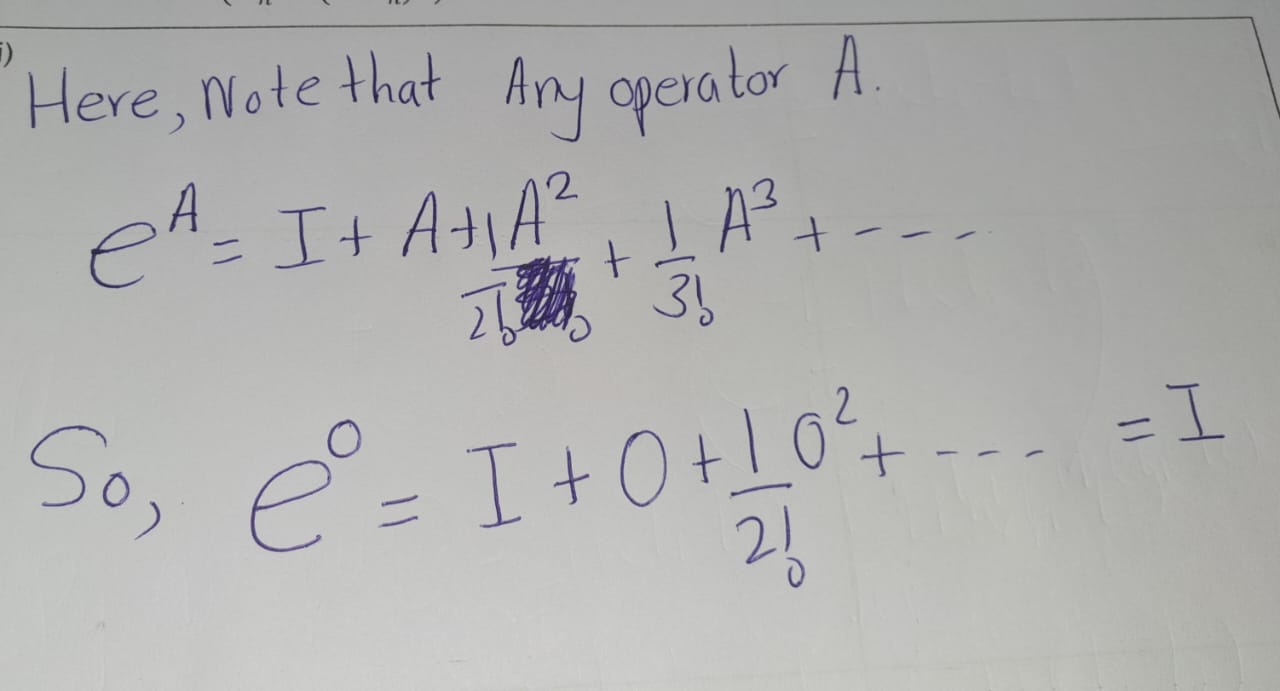 i)
Here, Note that Any operator A.
e^A = I + A + 1/2! A^2 + 1/3! A^3 + ----
So, e^0 = I + 0 + 1/2! 0^2 + ---- = I